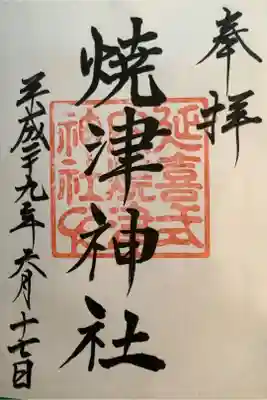 奉拝
焼津神社
延喜式
内焼津
神社之印
平成二十九年六月十七日